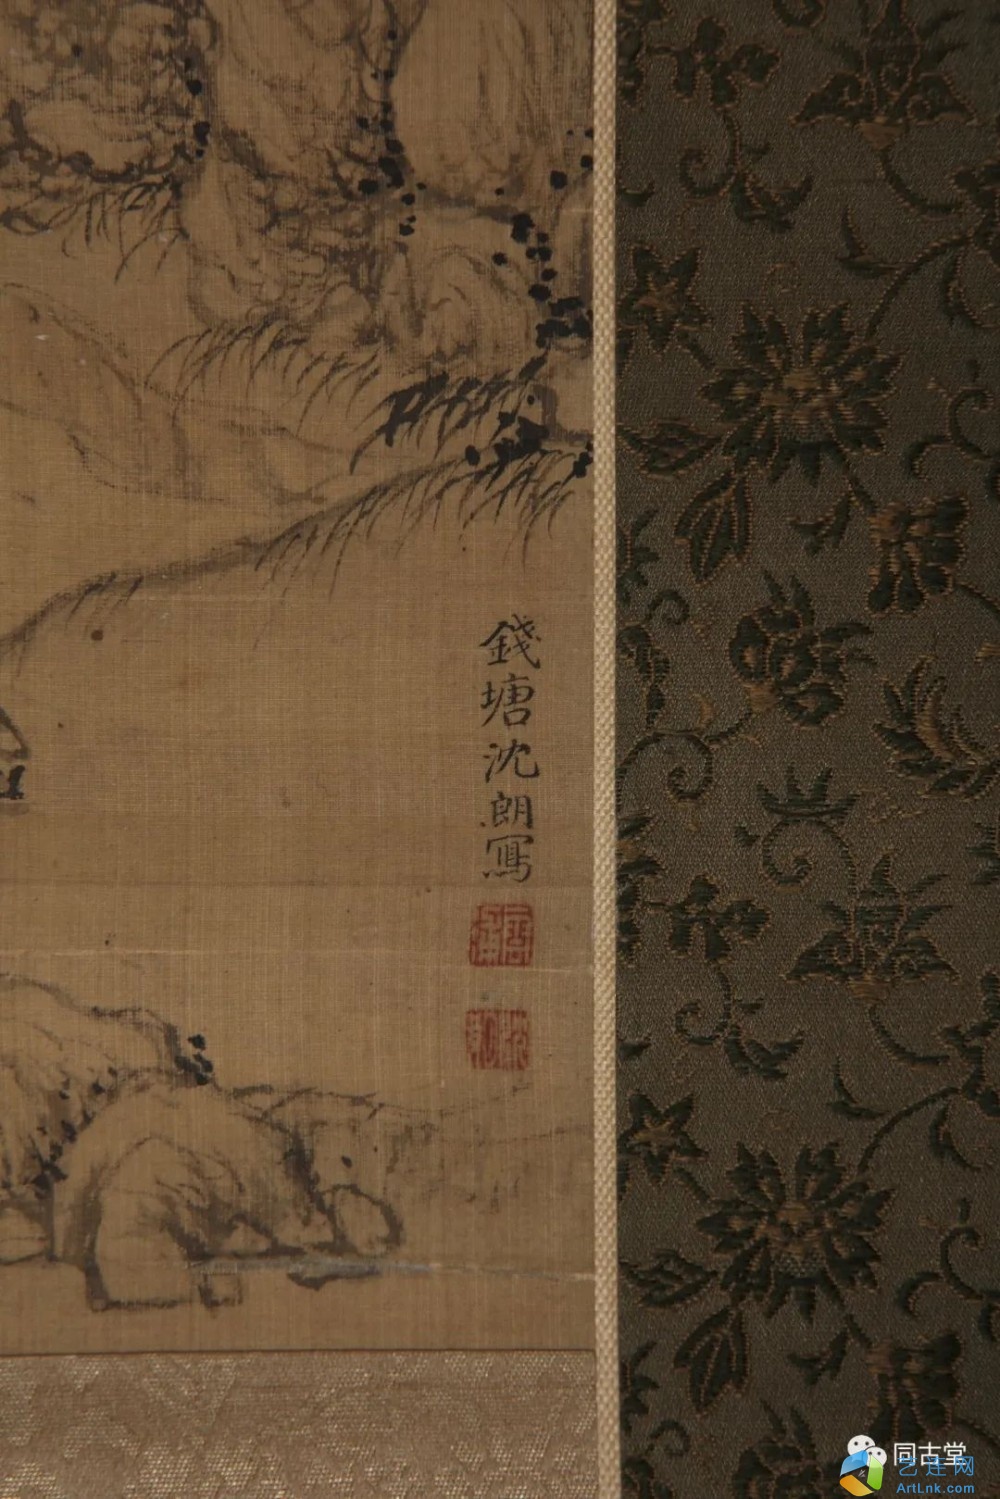 錢塘沈朗寫
同古堂
艺连网
ArtLnk.com